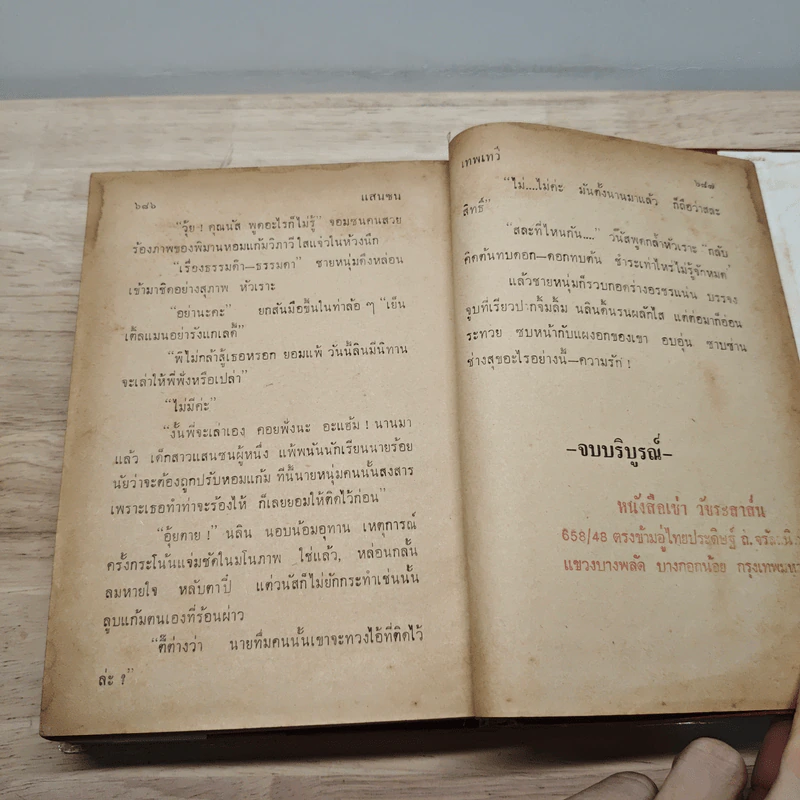 ๖๘๖ แสนซน
“วุ้ย ! คุณนัส พูดอะไรก็ไม่รู้” จอมซนคนสวย
ร้องภาพของพิมานหอมแก้มวิภาวีใสแจ๋วในห้วงนึก
“เรื่องธรรมด๊า—ธรรมดา” ชายหนุ่มดึงหล่อน
เข้ามาชิดอย่างสุภาพ หัวเราะ
“อย่านะคะ” ยกสันมือขึ้นในท่าล้อ ๆ “เย็น
เติ้ลแมนอย่ารังแกเลดี้”
“พี่ไม่กล้าสู้เธอหรอก ยอมแพ้ วันนี้ลินมีนิทาน
จะเล่าให้พี่ฟังหรือเปล่า”
“ไม่มีค่ะ”
“งั้นพี่จะเล่าเอง คอยฟังนะ อะแฮ้ม ! นานมา
แล้ว เด็กสาวแสนซนผู้หนึ่ง แพ้พนันนักเรียนนายร้อย
นัยว่าจะต้องถูกปรับหอมแก้ม ทีนี้นายหนุ่มคนนั้นสงสาร
เพราะเธอทำท่าจะร้องไห้ ก็เลยยอมให้ติดไว้ก่อน”
“อุ้ยตาย !” นลิน นอบน้อมอุทาน เหตุการณ์
ครั้งกระโน้นแจ่มชัดในมโนภาพ ใช่แล้ว, หล่อนกลั้น
ลมหายใจ หลับตาปี๋ แต่วนัสก็ไม่ยักกระทำเช่นนั้น
ลูบแก้มตนเองที่ร้อนผ่าว
“ต๊ะต่างว่า นายทึ่มคนนั้นเขาจะทวงไอ้ที่ติดไว้
ล่ะ ?”
เทพเทวี ๖๘๗
“ไม่....ไม่ค่ะ มันตั้งนานมาแล้ว ก็ถือว่าสละ
สิทธิ์”
“สละที่ไหนกัน....” วนัสพูดกลั้วหัวเราะ “กลับ
คิดต้นทบดอก—ดอกทบต้น ชำระเท่าไหร่ไม่รู้จักหมด”
แล้วชายหนุ่มก็รวบกอดร่างอรชรแน่น บรรจง
จูบที่เรียวปากจิ้มลิ้ม นลินดิ้นรนผลักไส แต่ต่อมาก็อ่อน
ระทวย ซบหน้ากับแผงอกของเขา อบอุ่น ซาบซ่าน
ช่างสุขอะไรอย่างนี้—ความรัก !
—จบบริบูรณ์—
หนังสือเช่า วัชระสาส์น
658/48 ตรงข้ามอู่ไทยประดิษฐ์ ถ.จรัลสนิ
แขวงบางพลัด บางกอกน้อย กรุงเทพมห